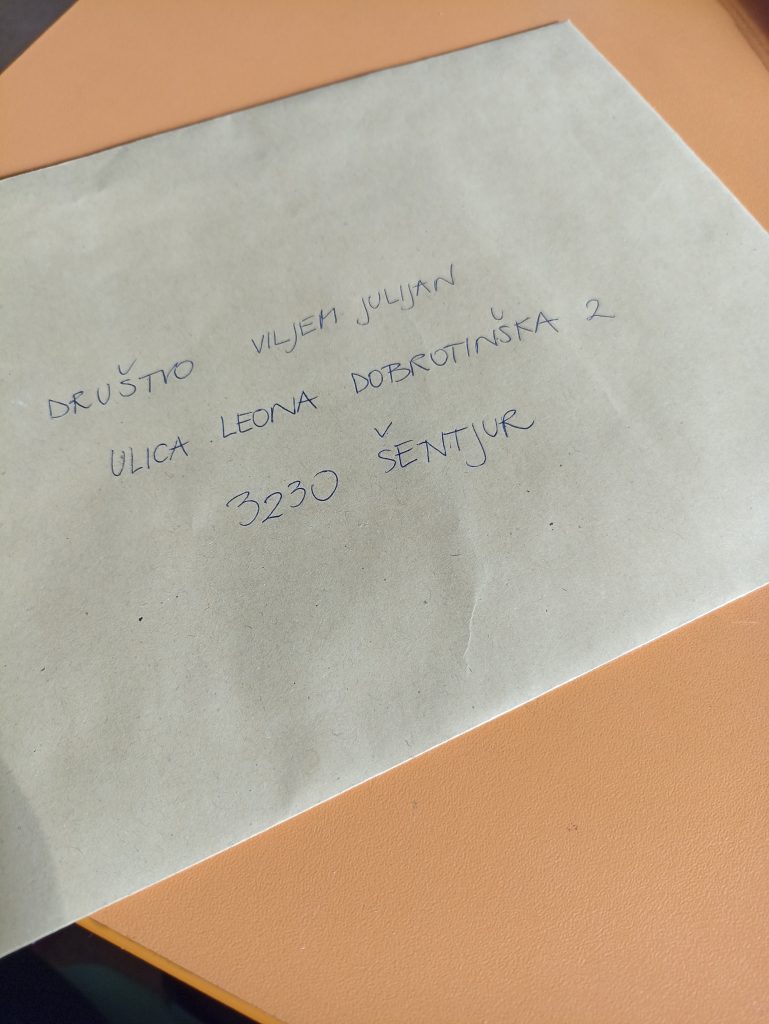 DRUŠTVO VILJEM JULIJAN
ULICA LEONA DOBROTINŠKA 2
3230 ŠENTJUR